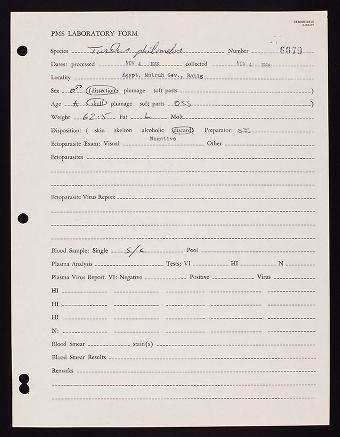 PMS LABORATORY FORM
Species Turdus philomelos Number 6879
Dates: processed NOV 4 1966 collected NOV 4 1966
Locality Egypt, Matruh Gov., Bahig
Sex ♂ (dissection) plumage soft parts )
Age A (skull) plumage soft parts OSS )
Weight 62.5 Fat L Molt
Disposition: ( skin skelton alcoholic (discard) Preparator:
Ectoparasite Exam: Visual Negative Other
Ectoparasites
Ectoparasite Virus Report
Blood Sample: Single S/C Pool
Plasma Analysis Tests: VI HI N
Plasma Virus Report. VI: Negative Positive Virus
HI
HI
HI
N:
Blood Smear stain(s)
Blood Smear Results
Remarks